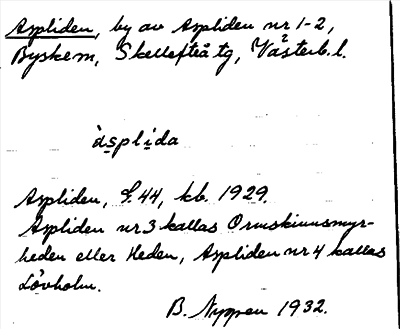 Aspliden, by av Aspliden nr 1-2,
Byskem, Skellefteå tg, Västerb. l.
àsplida
Aspliden, S. 44, kb. 1929.
Aspliden nr 3 kallas Ormskinnsmyr-
heden eller Heden, Aspliden nr 4 kallas
Lövholm.
B. Nyppen 1932.